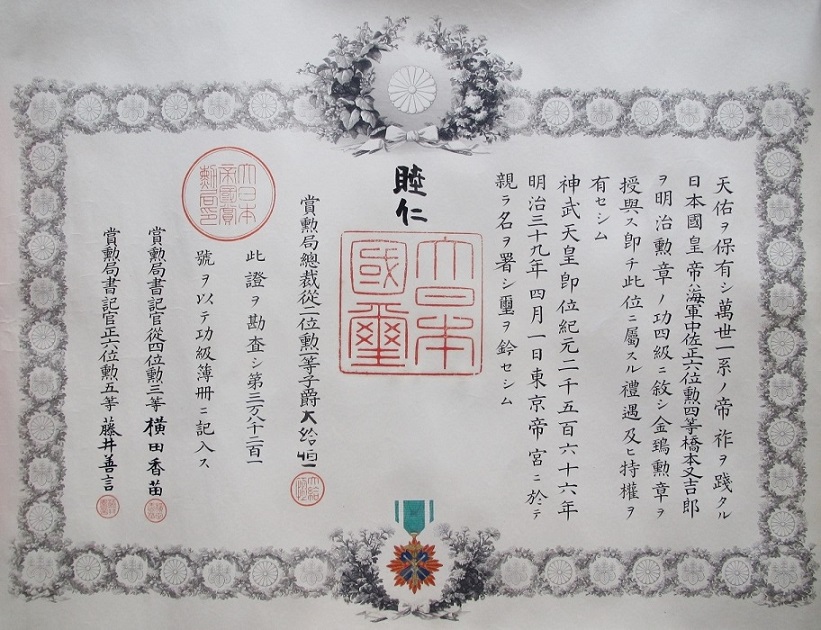 天佑ヲ保有シ萬世一系ノ帝祚ヲ踐タル
日本國皇帝ハ海軍中佐正六位勲四等橋本又吉郎
ヲ明治勲章ノ功四級ニ敘シ金鵄勲章ヲ
授與ス即チ此位ニ屬スル禮遇及ヒ特權ヲ
有セシム
神武天皇即位紀元二千五百六十六年
明治三十九年四月一日東京帝宮ニ於テ
親ラ名ヲ署シ璽ヲ鈐セシム
睦仁
大日本
國璽
賞勲局總裁從二位勲一等子爵大給恒
此證ヲ勘査シ第三万八千二百一
號ヲ以テ功級簿册ニ記入ス
大日本
帝國賞
勲局印
賞勲局書記官從四位勲三等横田香苗
賞勲局書記官正六位勲五等藤井善言